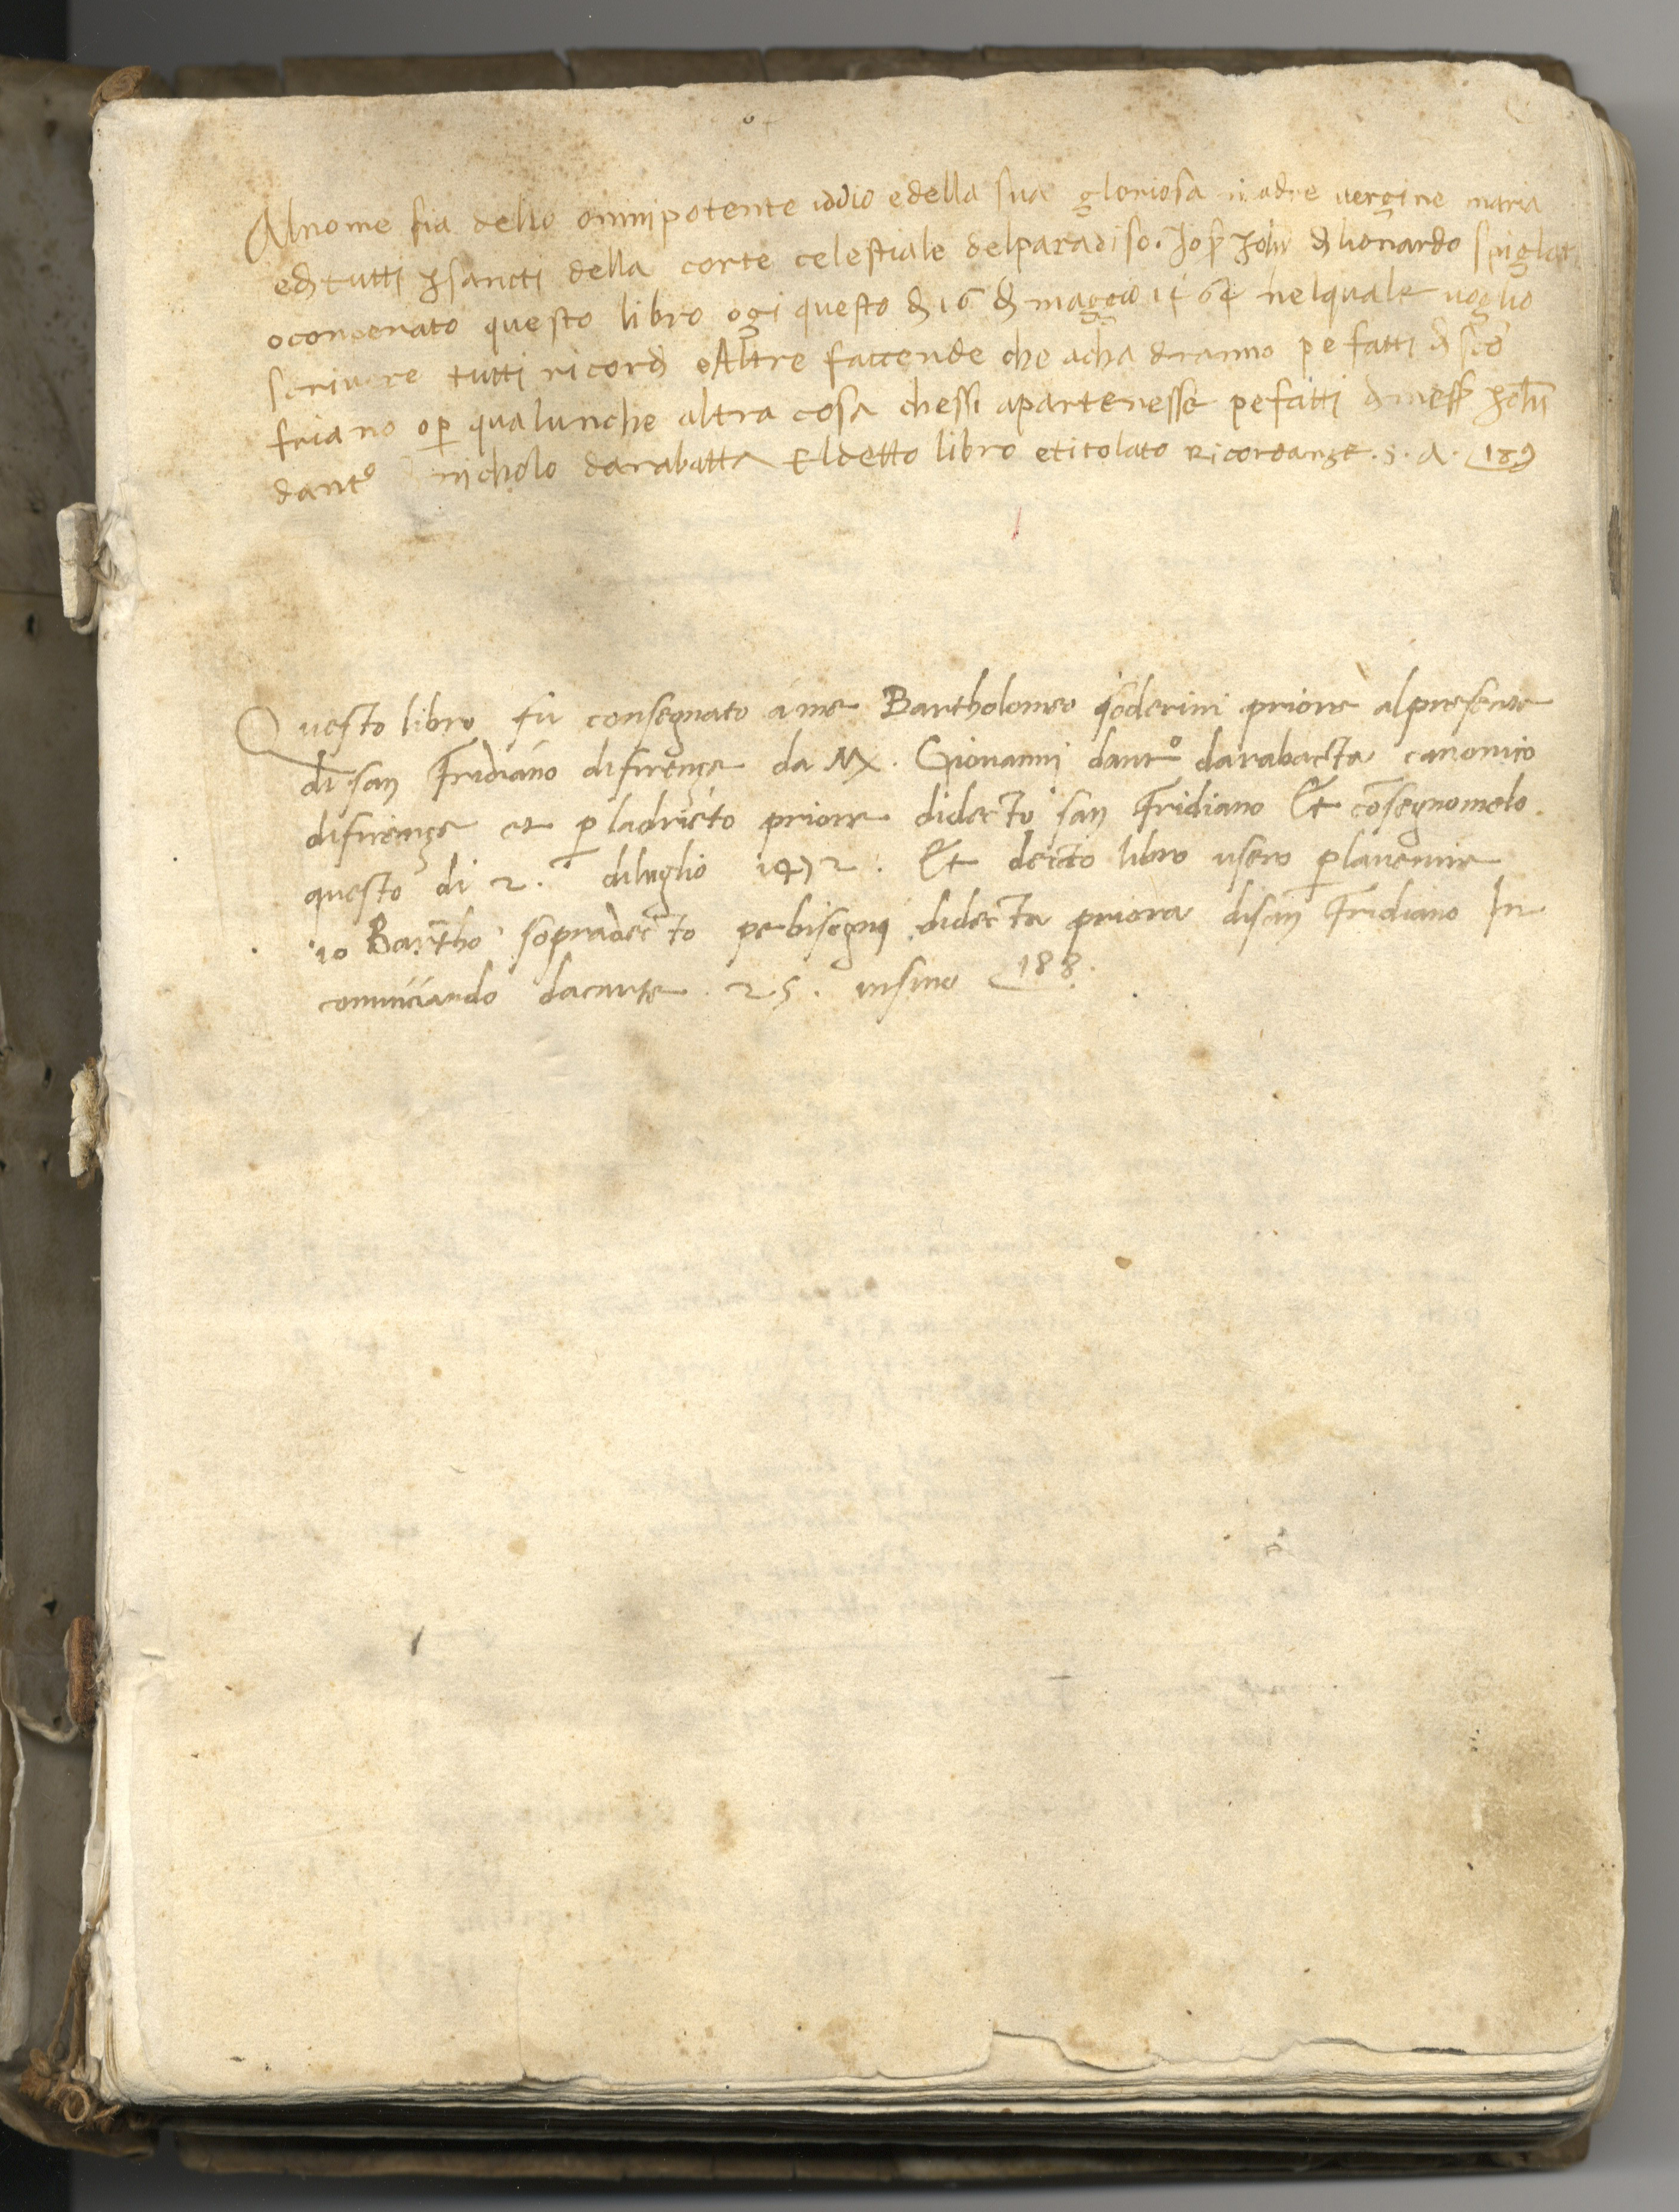 Al nome sia dello onnipotente iddio e della sua gloriosa madre vergine maria
e di tutti j sancti della corte celestiale del paradiso. Jo di lionardo
o concenato questo libro ogi questo di 16 di maggio 1464 nel quale voglio
scrivere tutti ricordi e Altre faccende che achadranno pe fatti di sco
friano o p qualunche altra cosa chessi apartenesse pe fatti di mess
dantº nicholo darabatta El detto libro e titolato Ricordanze .S.A. 189
Questo libro fu consegnato a me Bartholomeo soderini priore al presente
di san Fridiano di firenze da Mx. Giovanni dantº darabacta canonico
di firenze et p ladrieto priore di decto san Fridiano Et consegnomelo
questo di 2. di luglio 1472. Et decto libro usero p lavenire
io Bartho sopradecto pe bisogni di decta prioria di san Fridiano In
cominciando da carte 25. insino 188.